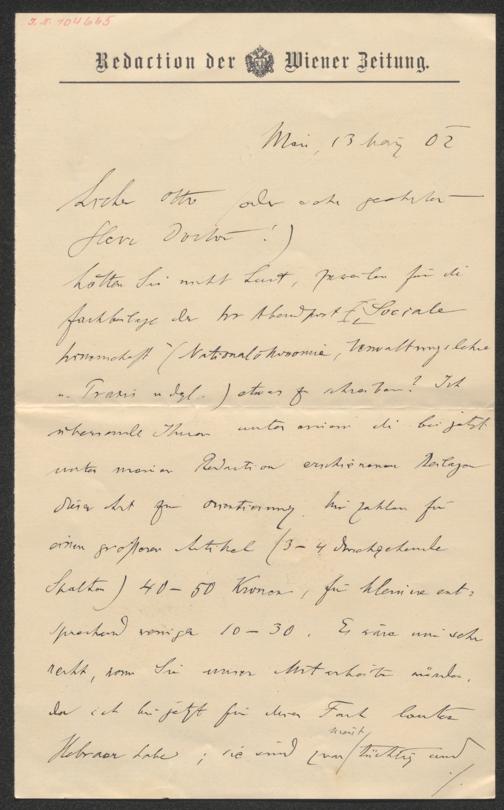 I. N. 104665
Redaction der Wiener Zeitung.
Wien, 13 März 02
Lieber Otto (oder sehr geehrter
Herr Doctor!)
hätten Sie nicht Lust, zuweilen für die
Fachbeilage der Wr Abendpost „Sociale
Wissenschaft" (Nationalökonomie, Verwaltungslehre
u. Praxis u dgl.) etwas zu schreiben? Ich
übersende Ihnen unter einem die bis jetzt
unter meiner Redaction erschienenen Beilagen
dieser Art zur Orientierung. Wir zahlen für
einen größeren Artikel (3–4 durchgehende
Spalten) 40–50 Kronen, für kleinere ent-
sprechend weniger 10–30. Es wäre mir sehr
recht, wenn Sie unser Mitarbeiter würden,
da ich bis jetzt für dieses Fach lauter
Hebräer habe; sie sind zwar meist tüchtig und
./.